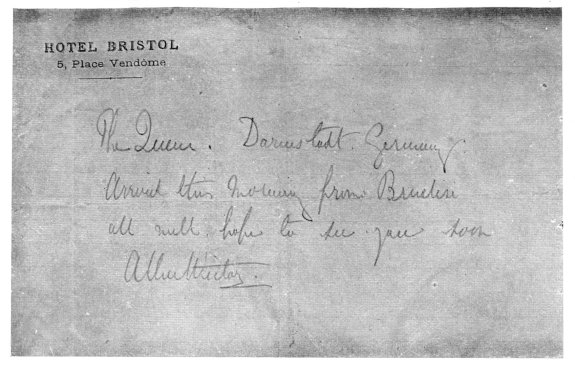 HOTEL BRISTOL
5, Place Vendôme
The Queen. Darmstadt. Germany.
Arrived this morning from
all well. hope to see you soon